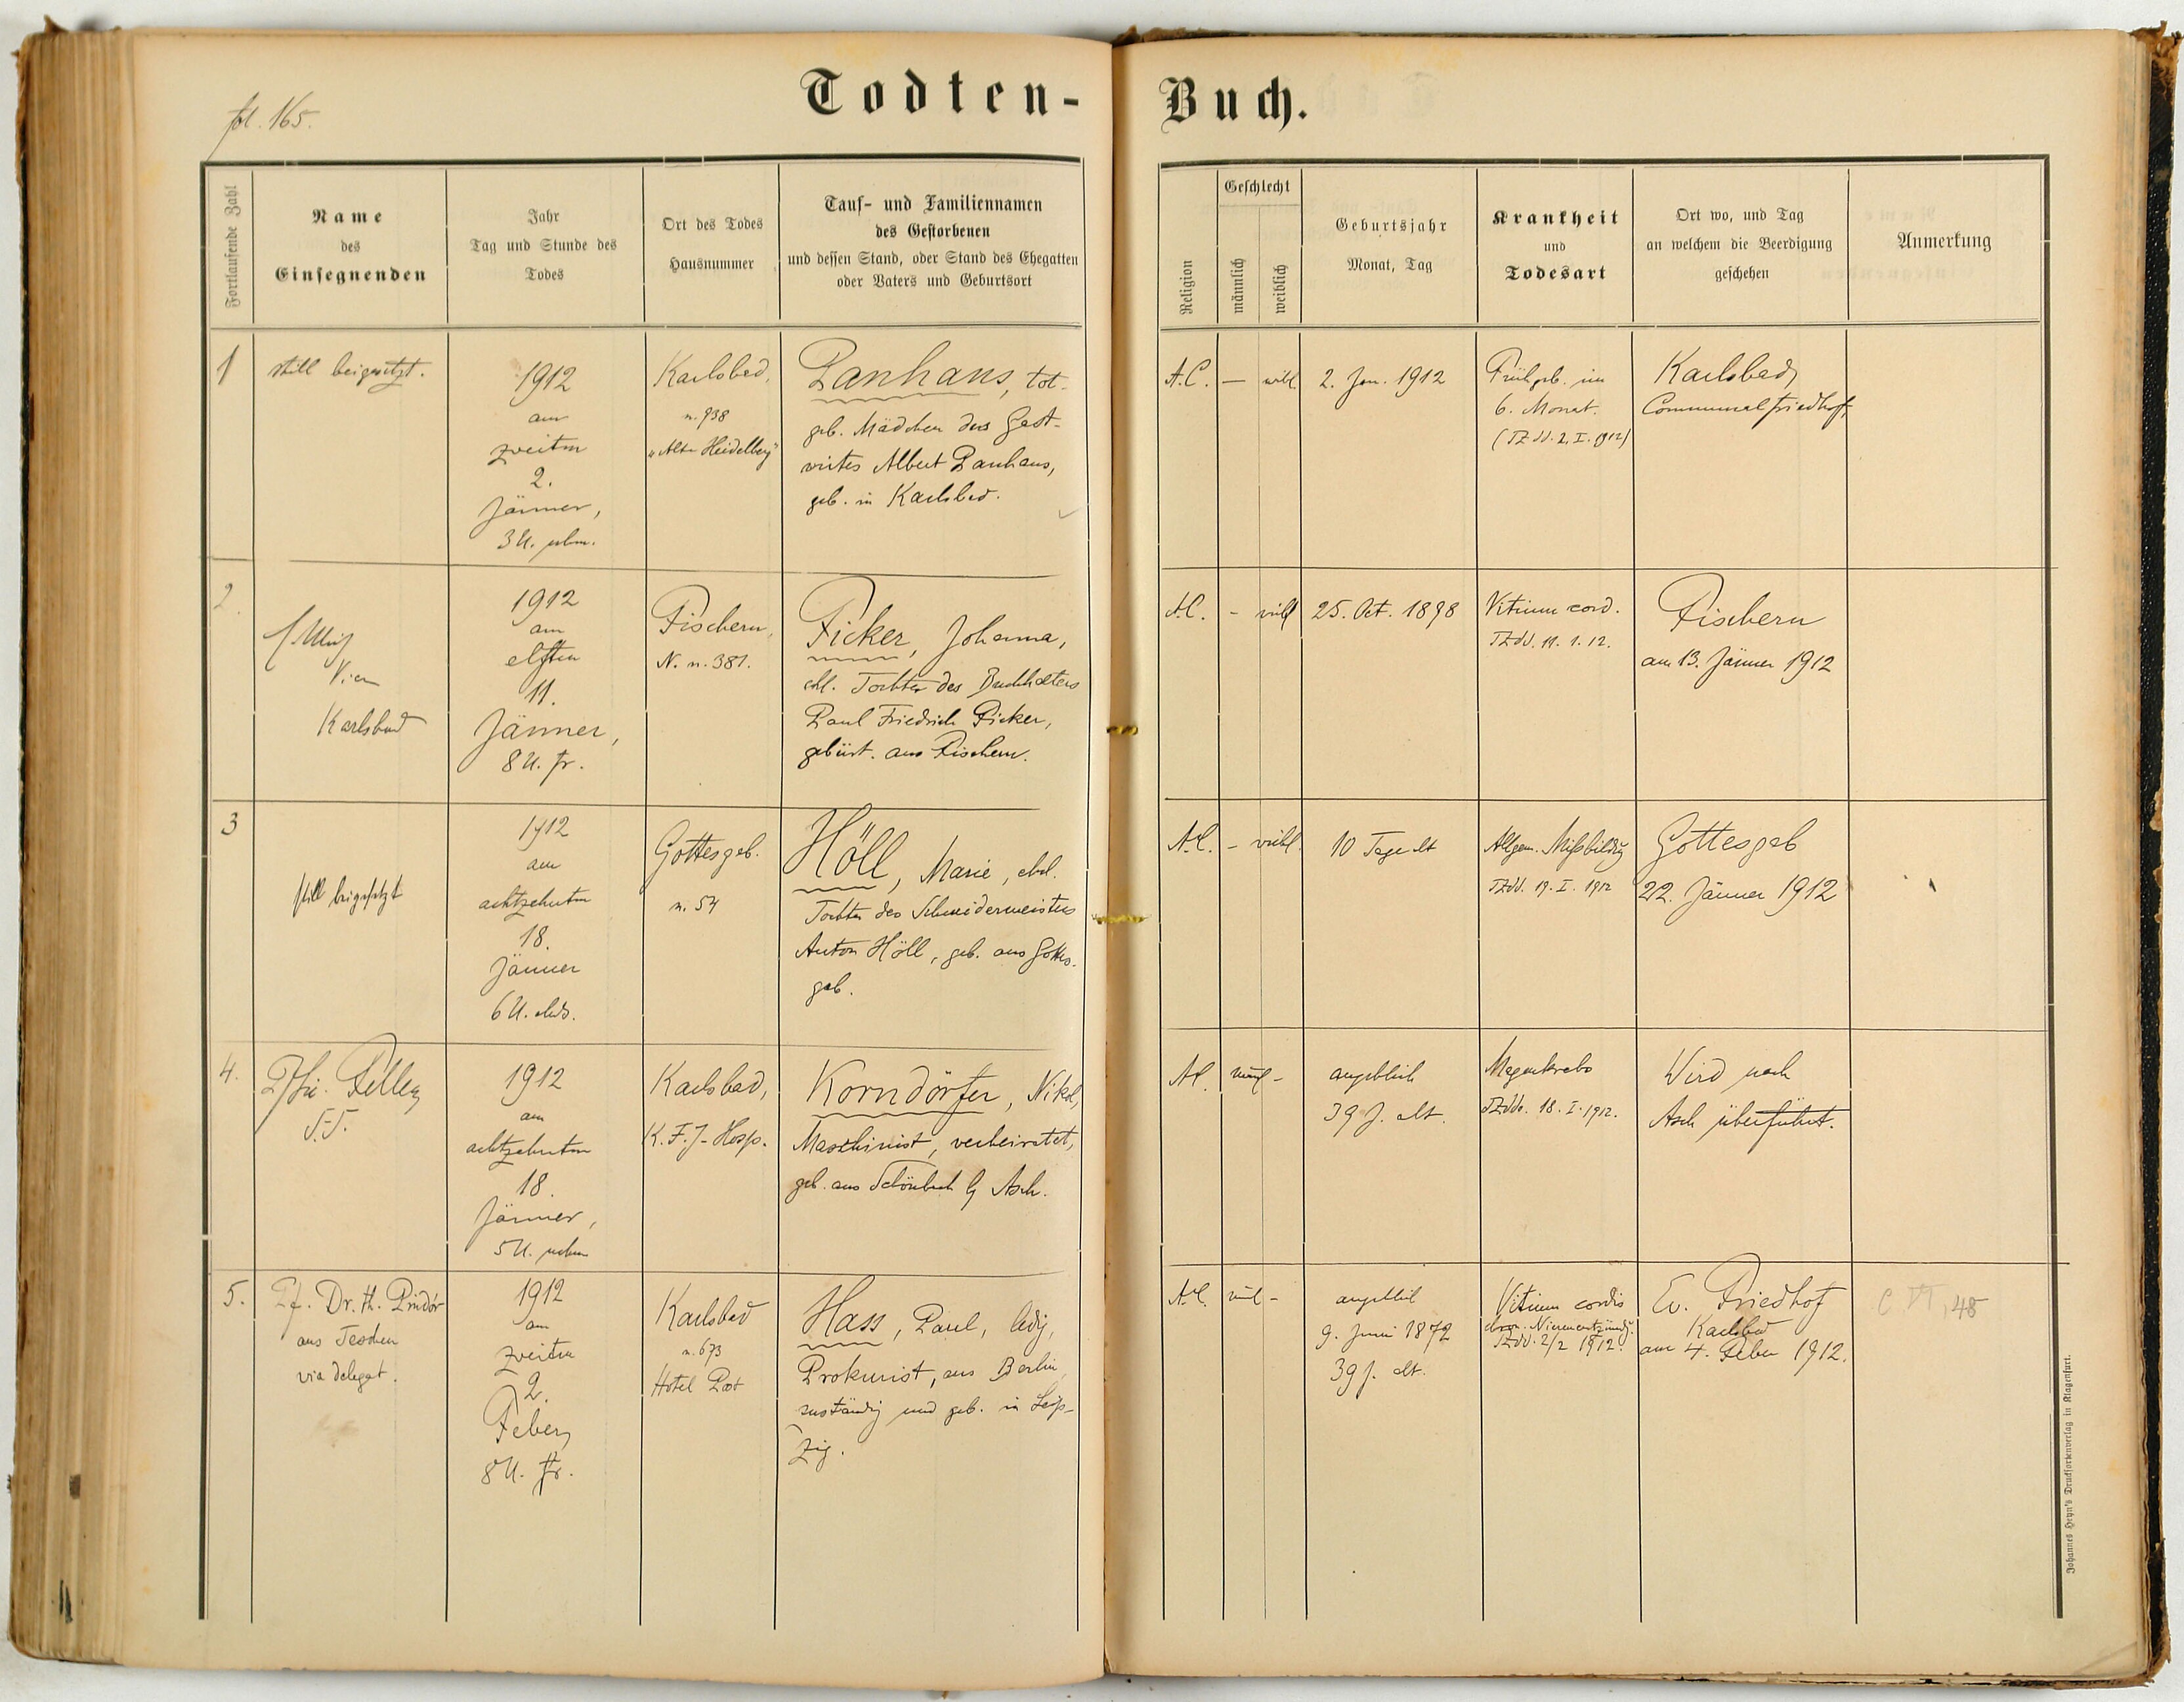 fol. 165.
Todten-Buch.
Fortlaufende Zahl
Name
des
Einsegnenden
Jahr
Tag und Stunde des
Todes
Ort des Todes
Hausnummer
Tauf- und Familiennamen
des Gestorbenen
und dessen Stand, oder Stand des Ehegatten
oder Vaters und Geburtsort
Religion
Geschlecht
männlich
weiblich
Geburtsjahr
Monat, Tag
Krankheit
und
Todesart
Ort wo, und Tag
an welchem die Beerdigung
geschehen
Anmerkung
1
still beigesetzt.
1912
am
zweiten
2.
Jänner,
3 U. nchm.
Karlsbad,
n. 938
"Alt-Heidelberg"
Panhans, tot-
geb. Mädchen des Gast-
wirtes Albert Panhans,
geb. in Karlsbad.
A.C.
—
weibl.
2. Jan. 1912
Frühgeb. im
6. Monat.
(TZ dd. 2. I. 1912)
Karlsbad,
Communalfriedhof,
2.
Karlsbad
1912
am
elften
11.
Jänner,
8 U. fr.
Fischern,
N. n. 381.
Ficker, Johanna,
ehl. Tochter des Buchhalters
Paul Friedrich Ficker,
gebürt. aus Fischern.
A.C.
-
weibl
25. Oct. 1898
Vitium cord.
TZ dd. 11. 1. 12.
Fischern
am 13. Jänner 1912
3
still beigesetzt
1912
am
achtzehnten
18.
Jänner
6 U. abds.
Gottesgab.
n. 54
Höll, Marie, ehel.
Tochter des Schneidermeisters
Anton Höll, geb. aus Gottes-
gab.
A.C.
-
weibl.
10 Tage alt
Allgem. Mißbildg
TZ dd. 19. I. 1912
Gottesgab
22. Jänner 1912
4.
1912
am
achtzehnten
18.
Jänner,
5 U. nchm
Karlsbad,
K. F. J.-Hosp.
Korndörfer, Nikol,
Maschinist, verheiratet,
geb. aus Schönbach b/ Asch.
A.C.
männl
-
angeblich
39 J. alt.
Magenkrebs
TZ ddo. 18. I. 1912.
Wird nach
Asch überführt.
5.
Pf. Dr. th. Pindór
aus Teschen
via delegat.
1912
am
zweiten
2.
Feber,
8 U. fr.
Karlsbad
n. 673
Hotel Post
Hass, Paul, ledig,
Prokurist, aus Berlin,
zuständig und geb. in Leip-
zig.
A.C.
männl
-
angeblich
9. Juni 1872
39 J. alt.
Vitium cordis
chron. Nierenentzündg.
TZ dd. 2/2 1912.
Ev. Friedhof
Karlsbad
am 4. Feber 1912.
C VI, 48
Johannes Heyn's Drucksortenverlag in Klagenfurt.